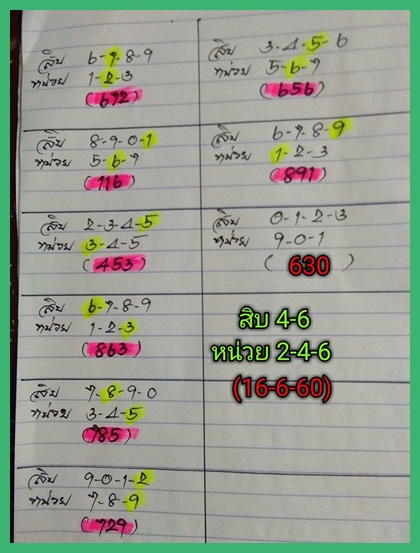 สิบ 6-7-8-9
หน่วย 1-2-3
(672)
สิบ 8-9-0-1
หน่วย 5-6-7
(116)
สิบ 2-3-4-5
หน่วย 3-4-5
(453)
สิบ 6-7-8-9
หน่วย 1-2-3
(863)
สิบ 7-8-9-0
หน่วย 3-4-5
(785)
สิบ 9-0-1-2
หน่วย 7-8-9
(729)
สิบ 3-4-5-6
หน่วย 5-6-7
(656)
สิบ 6-7-8-9
หน่วย 1-2-3
(891)
สิบ 0-1-2-3
หน่วย 9-0-1
( 630 )
สิบ 4-6
หน่วย 2-4-6
(16-6-60)